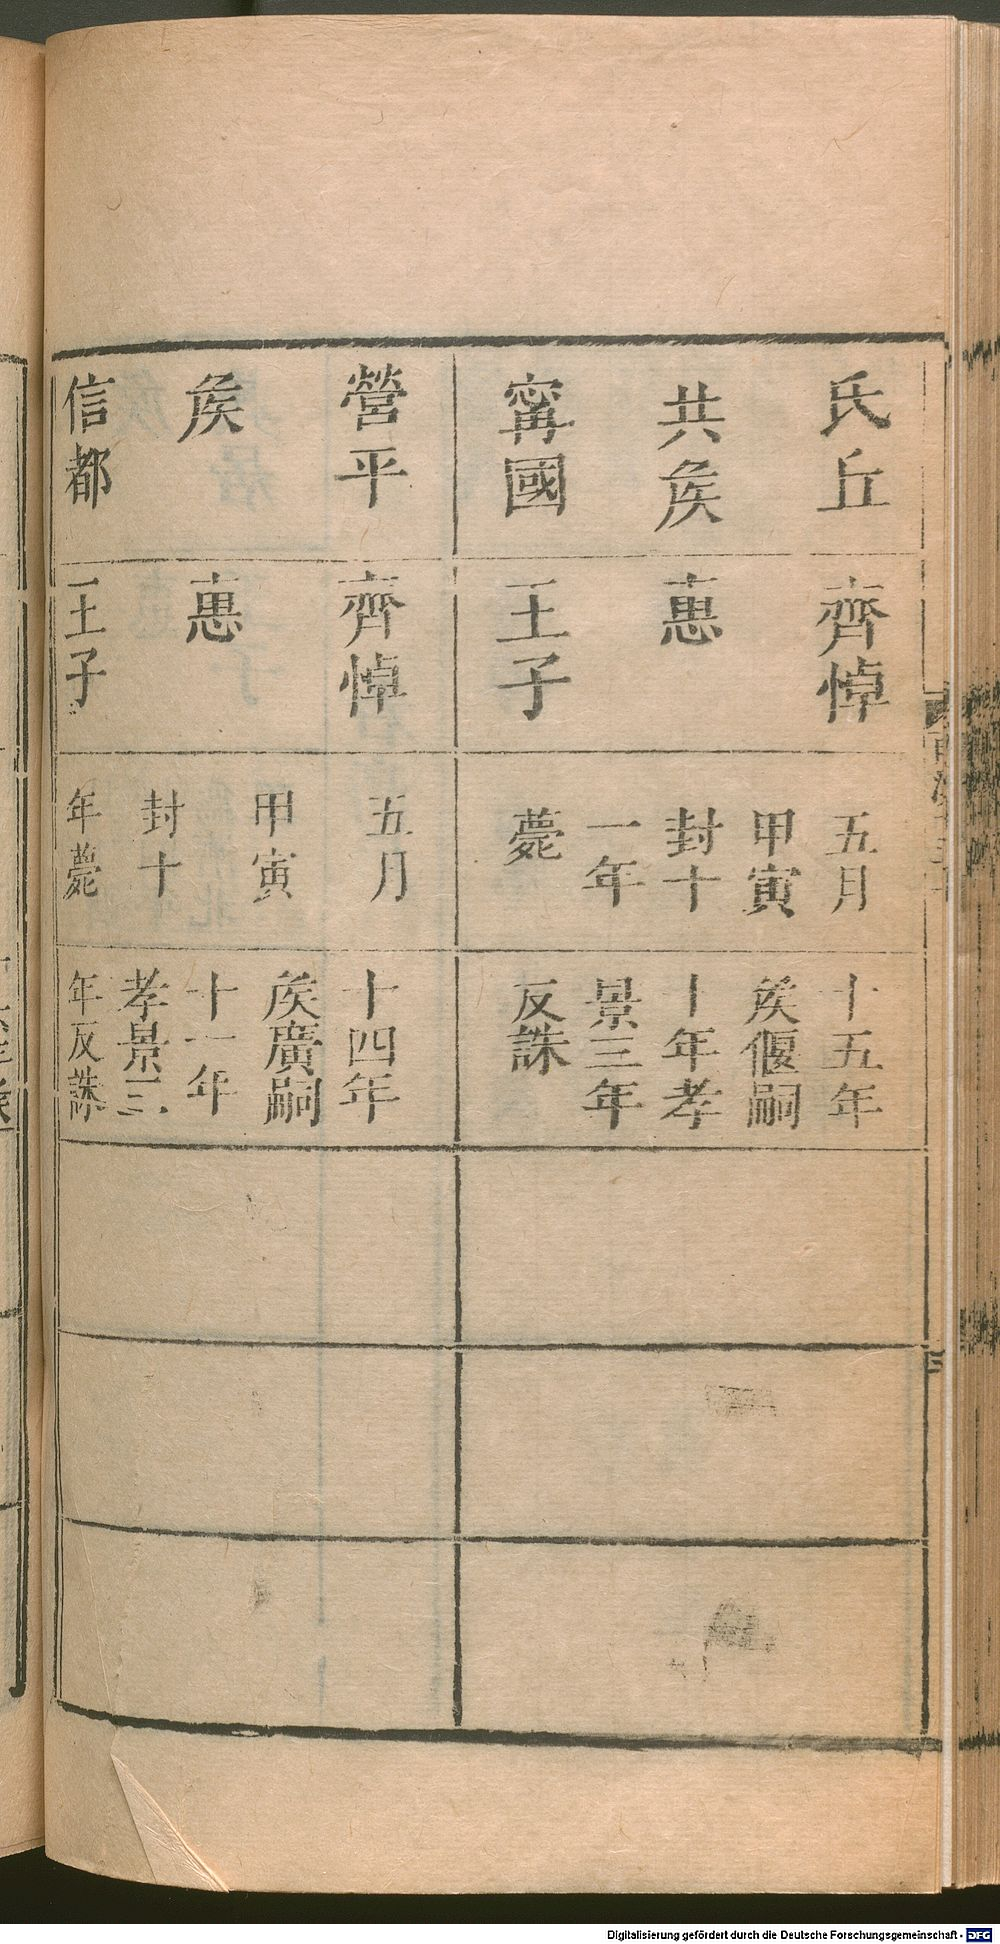 氏丘
共矦
寗國
齊悼
惠
王子
五月
甲寅
封十
一年
薨
十五年
矦偃嗣
十年孝
景三年
反誅
營平
矦
信都
齊悼
惠
王子
五月
甲寅
封十
年薨
十四年
矦廣嗣
十一年
孝景三
年反誅
Digitalisierung gefördert durch die Deutsche Forschungsgemeinschaft - DFG